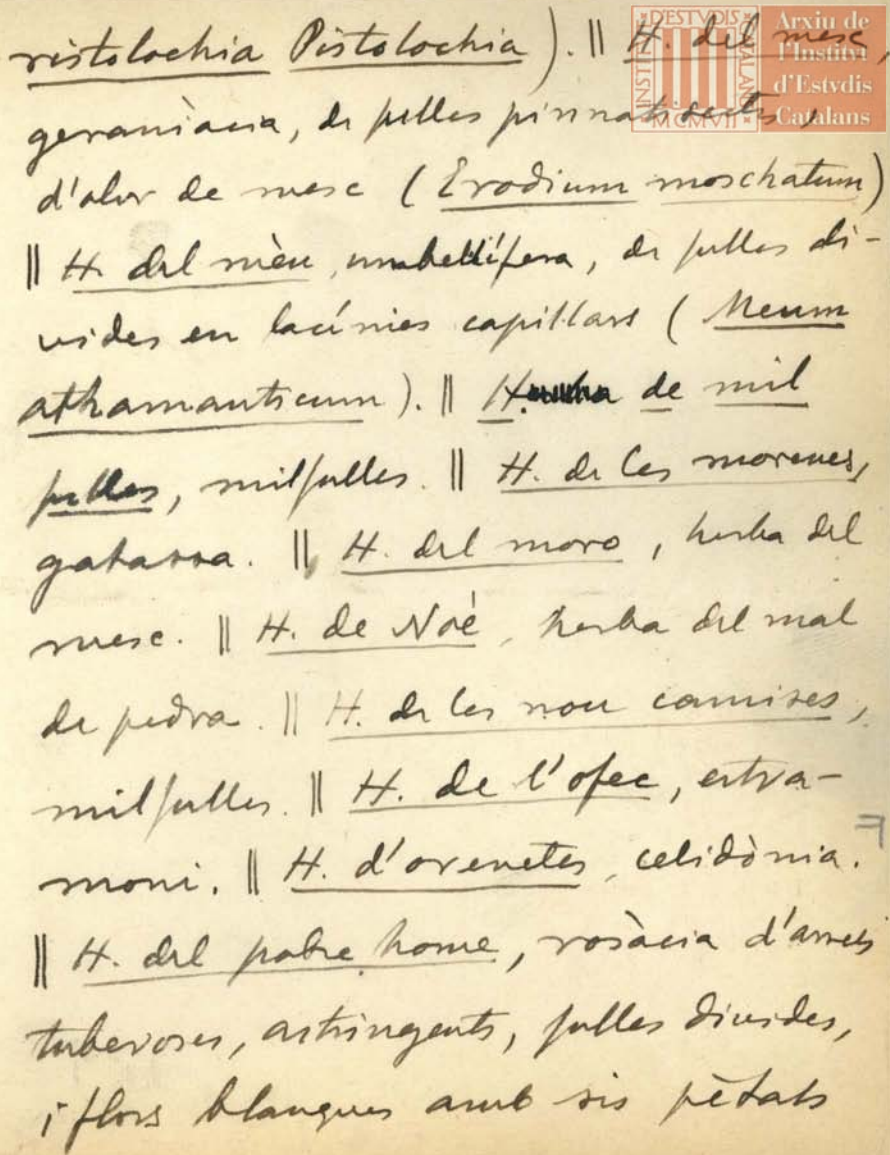 ristolochia Pistolochia). || H. del mesc,
geraniàcia, de fulles pinnatisectes,
d'olor de mesc (Erodium moschatum)
|| H. del mèu, umbel·lífera, de fulles di-
vides en lacínies capil·lars (Meum
athamanticum). || H. de mil
fulles, milfulles. || H. de les morenes,
gatassa. || H. del moro, herba del
mesc. || H. de Noè, herba del mal
de pedra. || H. de les nou camises,
milfulles. || H. de l'ofec, estra-
moni. || H. d'orenetes, celidònia.
|| H. del pobre home, rosàcia d'arrels
tuberoses, astringents, fulles divides,
i flors blanques amb sis pètals
INSTITVT D'ESTVDIS CATALANS
MCMVII
Arxiu de
l'Institvt
d'Estvdis
Catalans